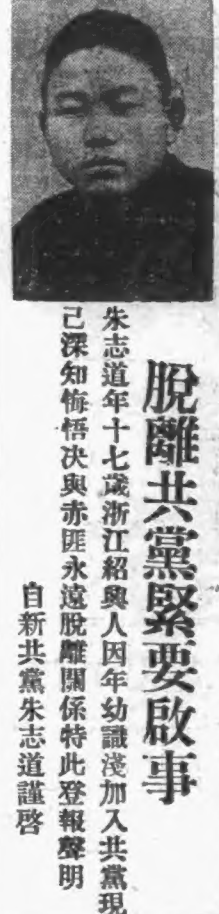 脫離共黨緊要啟事
朱志道年十七歲浙江紹興人因年幼識淺加入共黨現
己深知悔悟决與赤匪永遠脫離關係特此登報聲明
自新共黨朱志道謹啓